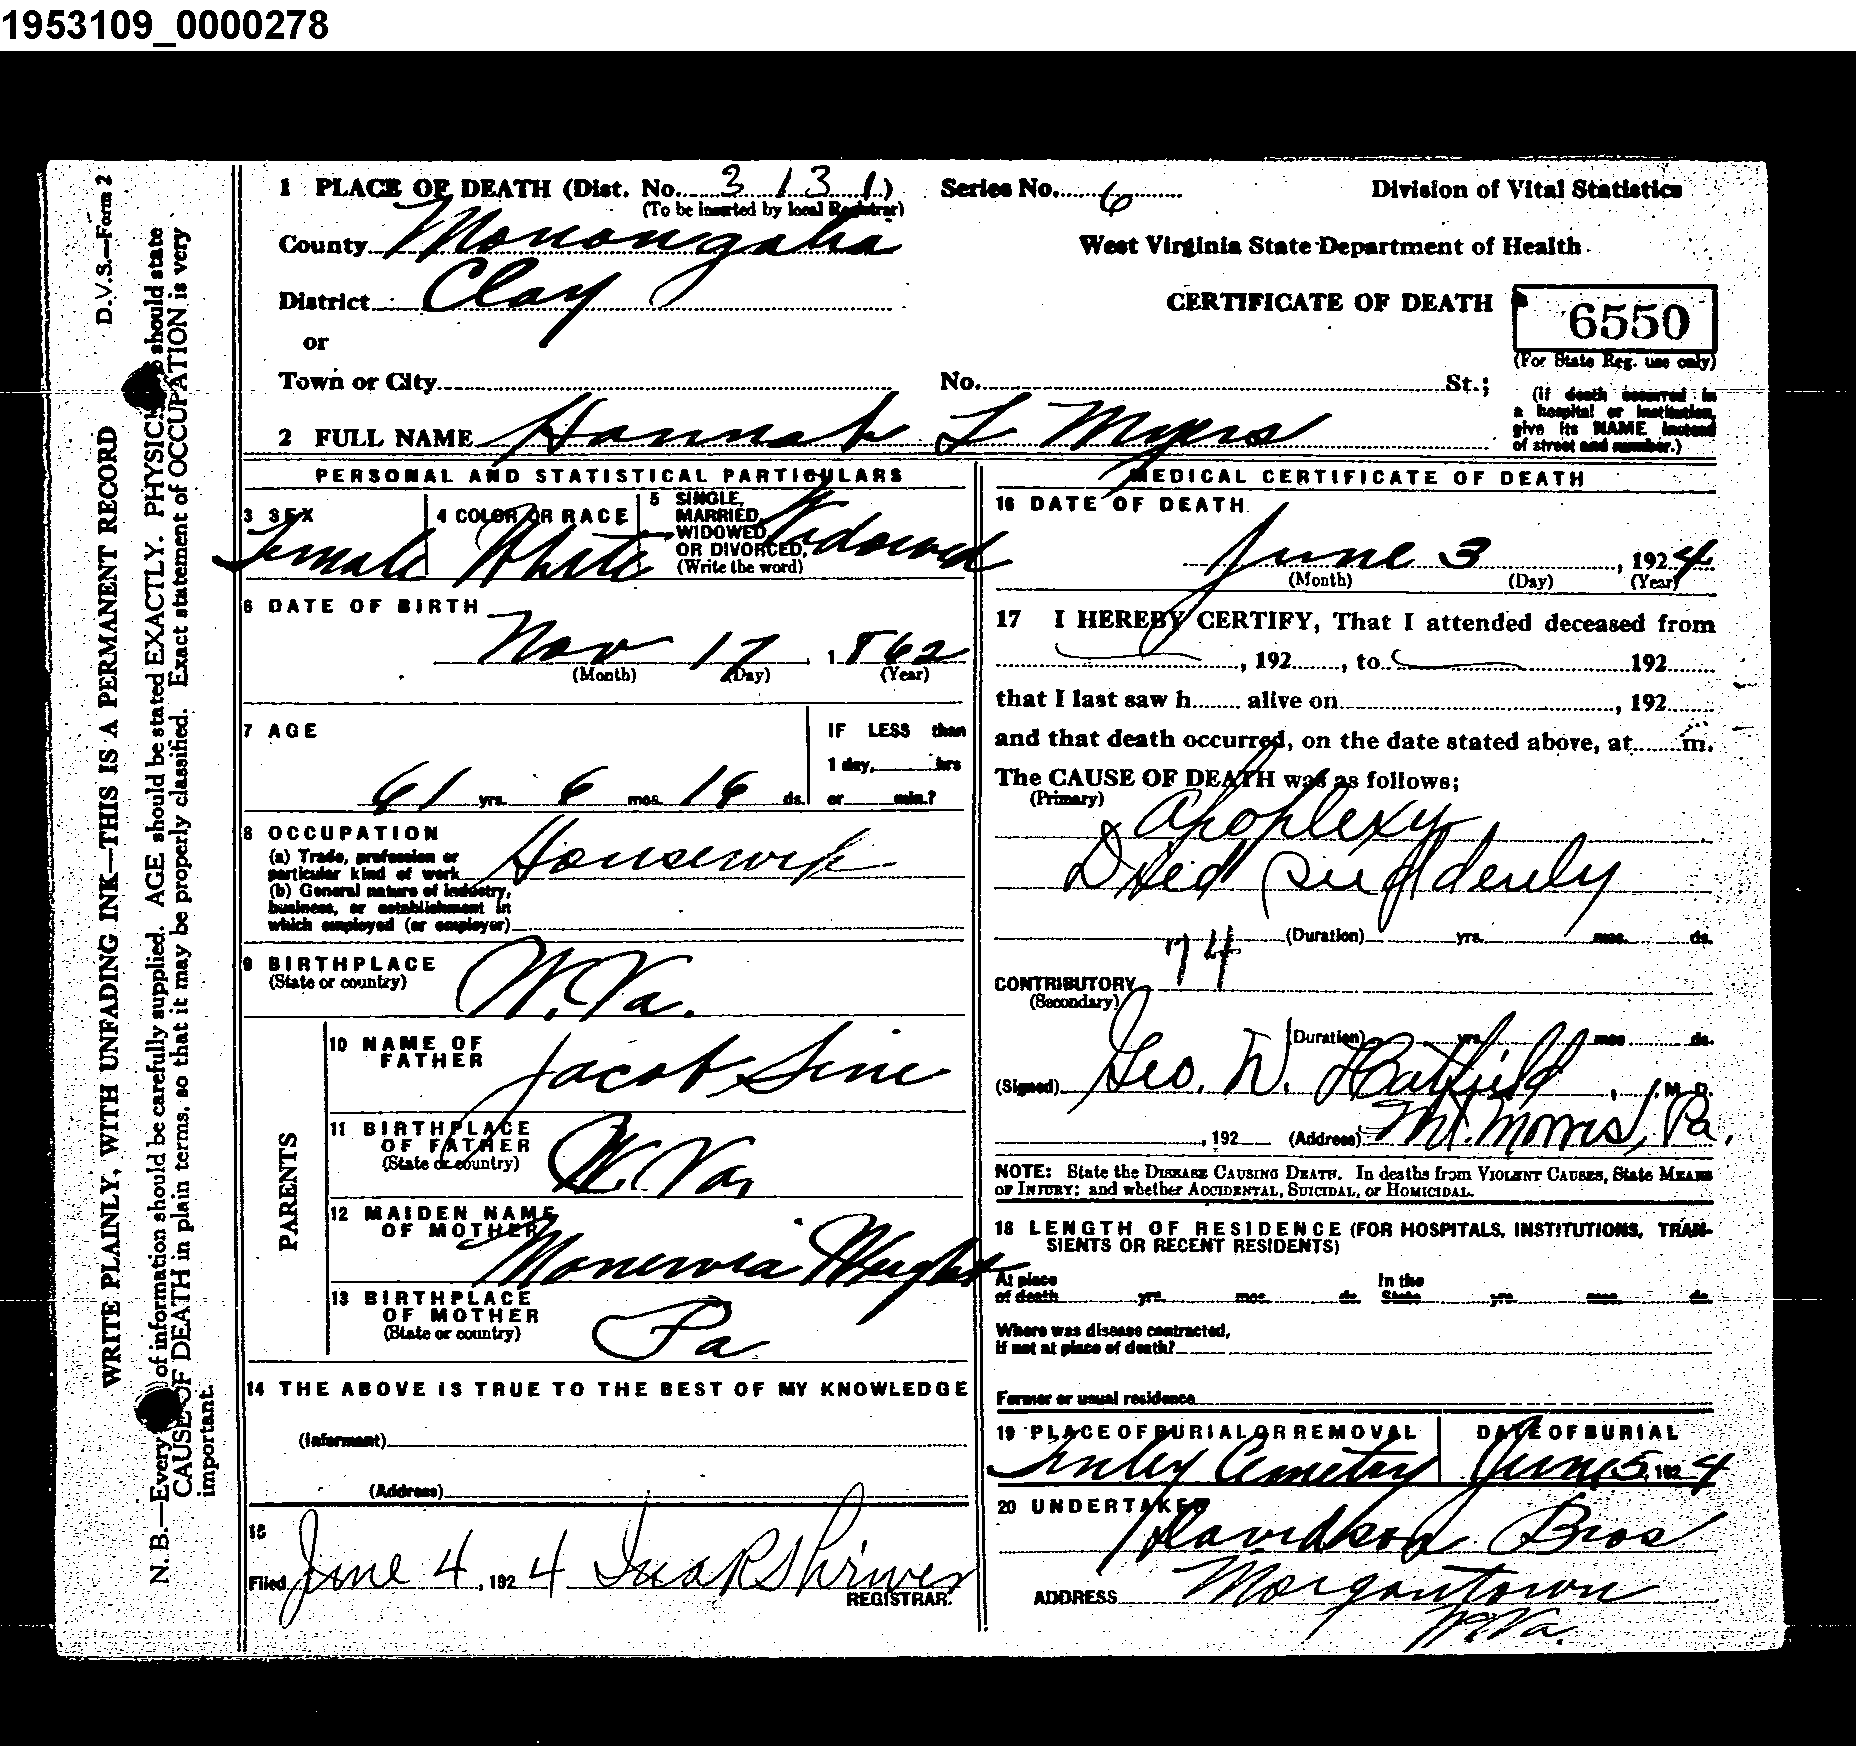 1953109_0000278
1 PLACE OF DEATH (Dist. No. 3 1 3 1) Series No. 6 Division of Vital Statistics
(To be inserted by local Registrar)
County Monongalia West Virginia State Department of Health
District Clay CERTIFICATE OF DEATH 6550
or (For State Reg. use only)
Town or City No. St.;
(If death occurred in
a hospital or institution,
give its NAME instead
of street and number.)
2 FULL NAME Hannah L Myers
PERSONAL AND STATISTICAL PARTICULARS
3 SEX 4 COLOR OR RACE 5 SINGLE,
MARRIED,
WIDOWED,
OR DIVORCED,
(Write the word)
Female White Widowed
6 DATE OF BIRTH
Nov 17 1862
(Month) (Day) (Year)
7 AGE IF LESS than
1 day, hrs
61 yrs. 6 mos. 16 ds. or min.?
8 OCCUPATION
(a) Trade, profession or
particular kind of work Housewife
(b) General nature of industry,
business, or establishment in
which employed (or employer)
9 BIRTHPLACE
(State or country) W. Va.
PARENTS
10 NAME OF
FATHER Jacob Sine
11 BIRTHPLACE
OF FATHER
(State or country) W. Va.
12 MAIDEN NAME
OF MOTHER Wright
13 BIRTHPLACE
OF MOTHER
(State or country) Pa
14 THE ABOVE IS TRUE TO THE BEST OF MY KNOWLEDGE
(Informant)
(Address)
15
Filed June 4, 1924 Shriver
REGISTRAR.
MEDICAL CERTIFICATE OF DEATH
16 DATE OF DEATH
June 3, 1924
(Month) (Day) (Year)
17 I HEREBY CERTIFY, That I attended deceased from
, 192 , to 192
that I last saw h alive on , 192
and that death occurred, on the date stated above, at m.
The CAUSE OF DEATH was as follows;
(Primary)
Apoplexy
Died suddenly
(Duration) yrs. mos. ds.
74
CONTRIBUTORY
(Secondary)
(Duration) yrs. mos. ds.
(Signed) Geo. W. Hatfield, M. D.
, 192 (Address) Mt. Morris, Pa.
NOTE: State the DISEASE CAUSING DEATH. In deaths from VIOLENT CAUSES, State MEANS
OF INJURY; and whether ACCIDENTAL, SUICIDAL, or HOMICIDAL.
18 LENGTH OF RESIDENCE (FOR HOSPITALS, INSTITUTIONS, TRAN-
SIENTS OR RECENT RESIDENTS)
At place In the
of death yrs. mos. ds. State yrs. mos. ds.
Where was disease contracted,
If not at place of death?
Former or usual residence
19 PLACE OF BURIAL OR REMOVAL DATE OF BURIAL
Cemetry June 5, 1924
20 UNDERTAKER
Davidson Bros
ADDRESS Morgantown
W. Va.
D.V.S.—Form 2
WRITE PLAINLY, WITH UNFADING INK—THIS IS A PERMANENT RECORD
N. B.—Every of information should be carefully supplied. AGE should be stated EXACTLY. PHYSICIANS should state
CAUSE OF DEATH in plain terms, so that it may be properly classified. Exact statement of OCCUPATION is very
important.